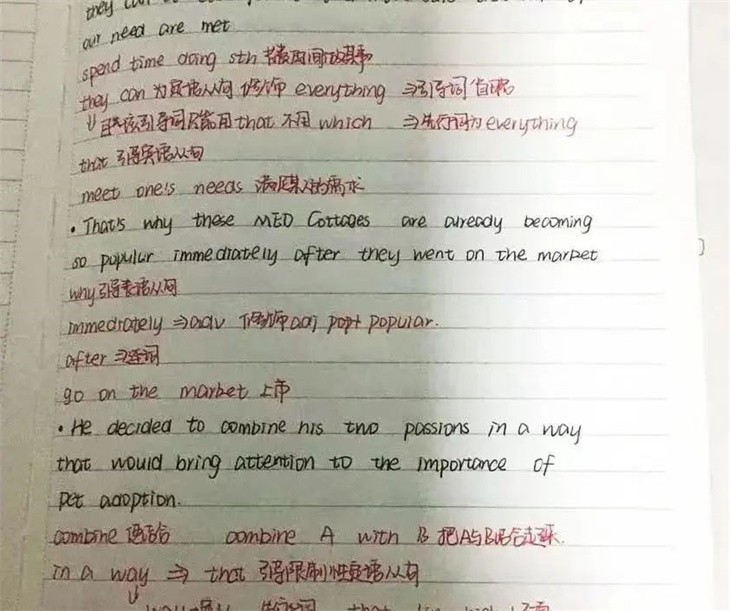 they can
our need are met
spend time doing sth 花费时间做某事
they can 为定语从句 修饰 everything ⇒引导词省略
⇓且该引导词只能用 that 不用 which ⇒先行词为 everything
that 引导宾语从句
meet one's needs 满足某人的需求
• That's why these MED Cottages are already becoming
so popular immediately after they went on the market
why引导表语从句
immediately ⇒adv 修饰adj popular.
after ⇒连词
go on the market 上市
• He decided to combine his two passions in a way
that would bring attention to the importance of
pet adoption.
combine 结合 combine A with B 把A与B结合起来.
in a way ⇒ that 引导限制性定语从句
⇓
way 先行词 that